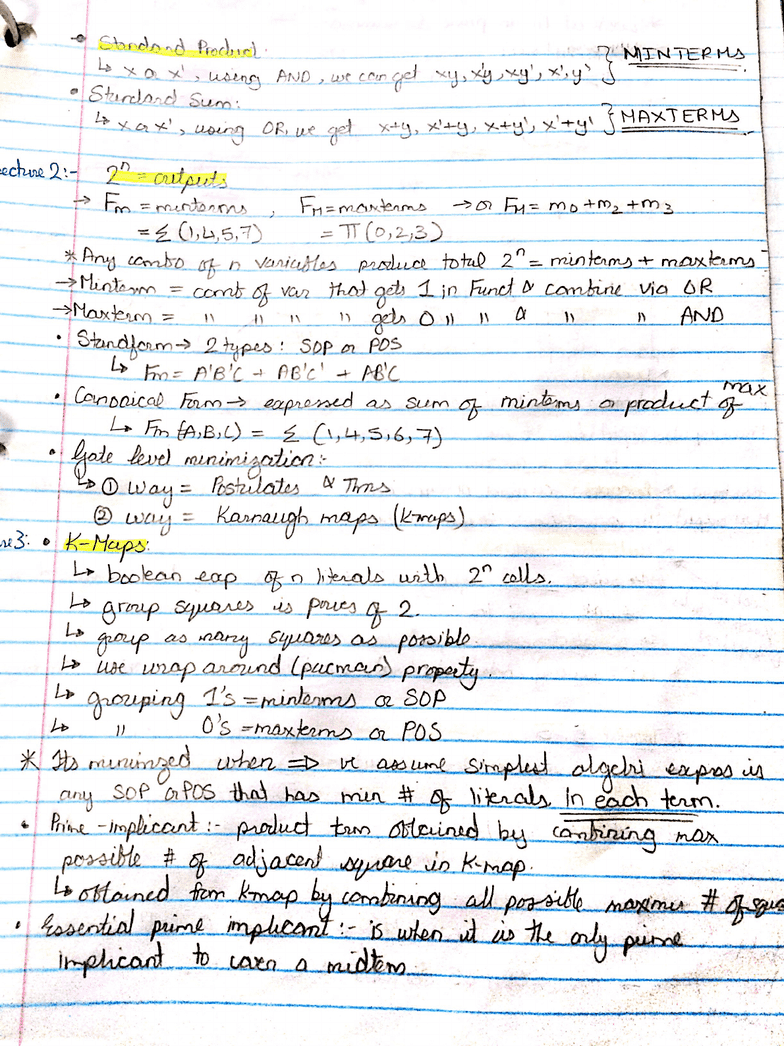 • Standard Product:
↳ x or x', using AND, we can get xy, x'y, xy', x',y' } MINTERMS
• Standard Sum:
↳ x or x', using OR, we get x+y, x'+y, x+y', x'+y' } MAXTERMS
ecture 2:- 2ⁿ = outputs
→ Fm = minterms , FM = maxterms → or FM = m0 + m2 + m3
= Σ (1,4,5,7) = π (0,2,3)
* Any combo of n variables produce total 2ⁿ = minterms + maxterms
→ Minterm = comb of var that gets 1 in Funct & combine via OR
→ Maxterm = " " " " gets 0 " " & " " AND
• Standform → 2 types: SOP or POS
↳ Fm = A'B'C + AB'C' + AB'C
• Canonical Form → expressed as sum of minterms or product of max
↳ Fm (A,B,C) = Σ (1,4,5,6,7)
• Gate level minimization:-
↳ ① way = Postulates & Thms
② way = Karnaugh maps (kmaps)
re3: • K-Maps:
↳ boolean exp of n literals with 2ⁿ cells.
↳ group squares is power of 2.
↳ group as many squares as possible.
↳ use wrap around (pacman) property.
↳ grouping 1's = minterms or SOP
↳ " 0's = maxterms or POS
* Its minimized when ⇒ we assume simplest algebri expres is
any SOP or POS that has min # of literals in each term.
• Prime-implicant:- product term obtained by combining max
possible # of adjacent square in K-map.
↳ obtained from kmap by combining all possible maximum # of squa
• Essential prime implicant:- is when it is the only prime
implicant to cover a midterm